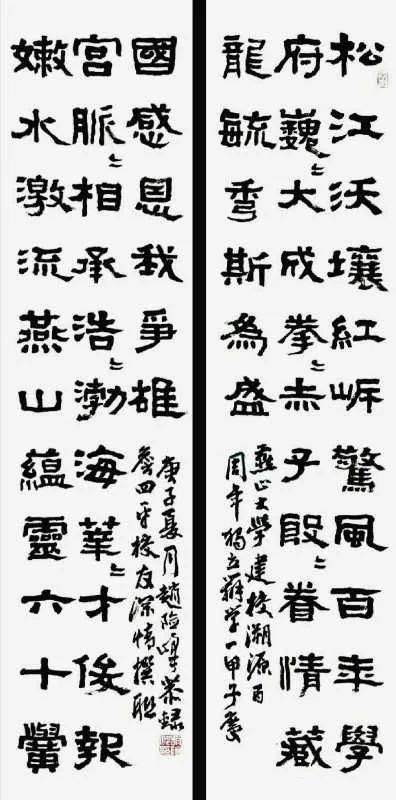 松江沃壤紅岸驚風百年學
府巍〻大成拳〻赤子殷〻眷情藏
龍毓秀斯為盛
燕山大學建校溯源百
周年獨立辦學一甲子慶
嫩水激流燕山蘊靈六十黌
宮脈〻相承浩〻渤海莘〻才俊報
國感恩我爭雄
庚子夏月趙險峰恭録
詹四平校友深情撰聯